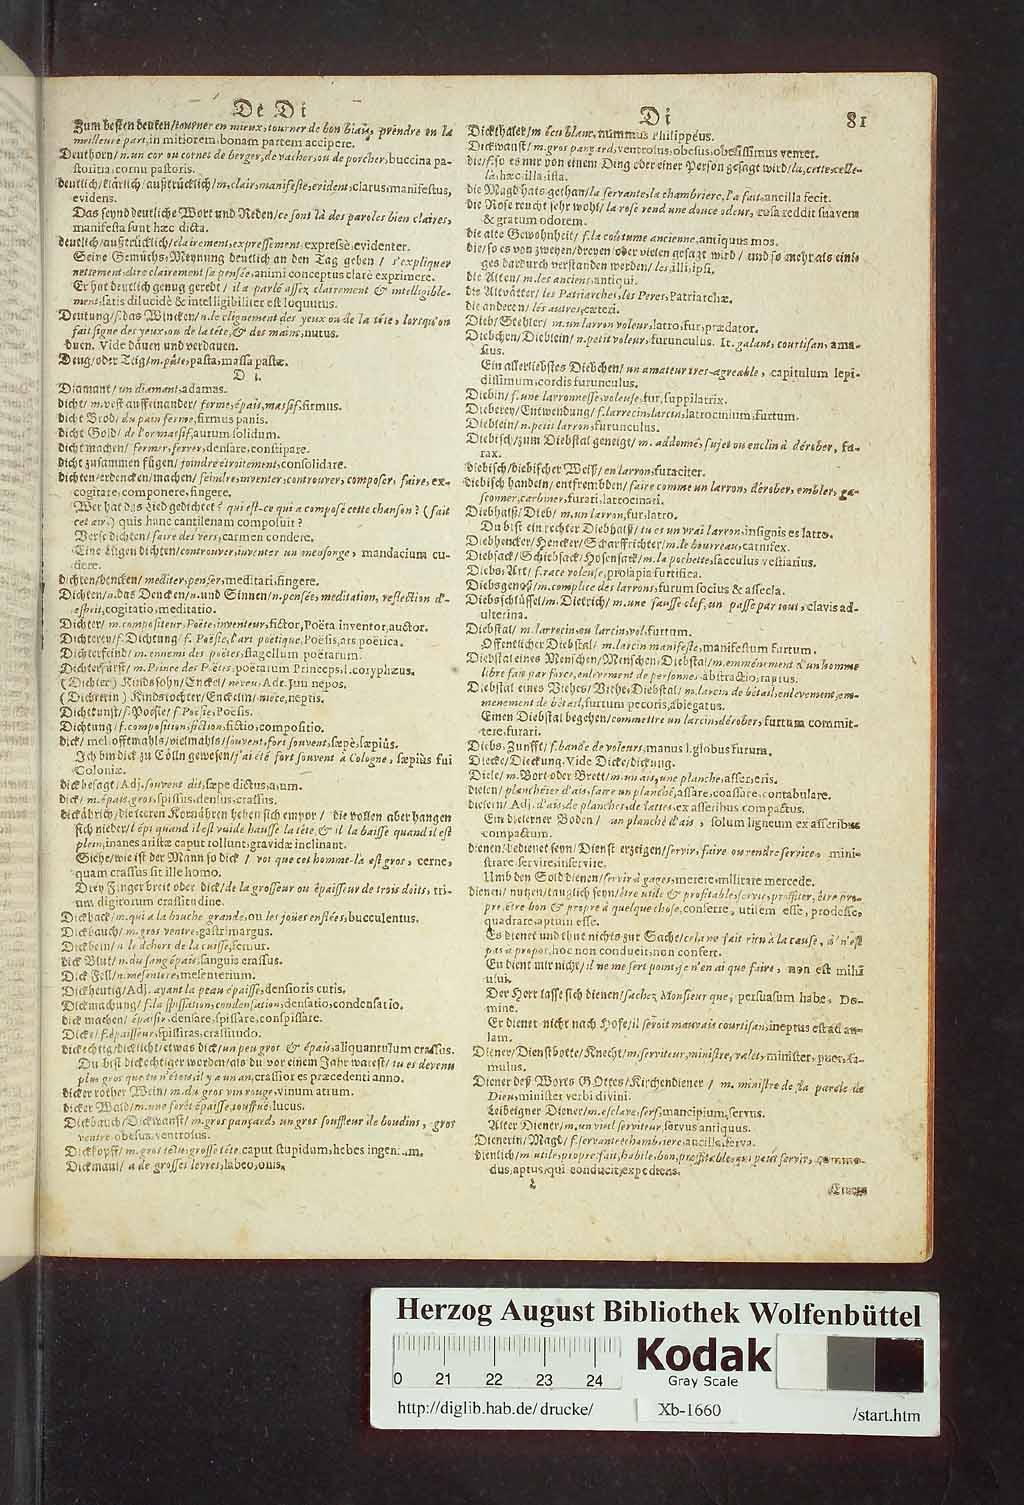 De Di
Zum besten deuten/tourner en mieux, tourner de bon biais, prendre en la
meilleure part, in mitiorem, bonam partem accipere.
Deuthorn/ n. un cor ou cornet de berger, de vacher, ou de porcher, buccina pa-
storitia, cornu pastoris.
deutlich/klärlich/außtrücklich/ m, clair, manifeste, evident, clarus, manifestus,
evidens.
Das seynd deutliche Wort und Reden/ce sont là des paroles bien claires,
manifesta sunt hæc dicta.
deutlich/außtrücklich/clairement, expressément, expressè, evidenter.
Seine Gemüths-Meynung deutlich an den Tag geben / s'expliquer
nettement, dire clairement sa pensée, animi conceptus clarè exprimere.
Er hat deutlich genug geredt / il a parlé assez clairement & intelligible-
ment, satis dilucidè & intelligibiliter est loquutus.
Deutung/ f. das Wincken/ n. le clignement des yeux ou de la tête, lorsqu'on
fait signe des yeux, ou de la tête, & des mains, nutus.
duen. Vide däuen und verdauen.
Deug/oder Teig/m. pâte, pasta, massa pastæ.
D i.
Diamant/ un diamant, adamas.
dicht/ m. vest auffeinander/ ferme, épais, massif, firmus.
dicht Brod/ du pain ferme, firmus panis.
dicht Gold/ de l'or massif, aurum solidum.
dicht machen/ fermer, serrer, densare, constipare.
dicht zusammen fügen/ joindre étroitement, consolidare.
dichten/erdencken/machen/ feindre, inventer, controuver, composer, faire, ex-
cogitare, componere, fingere.
Wer hat das Lied gedichtet? qui est-ce qui a composé cette chanson? (fait
cet air.) quis hanc cantilenam composuit?
Verse dichten/ faire des vers, carmen condere.
Eine Lügen dichten/controuver, inventer un mensonge, mandacium cu-
dere.
dichten/dencken/ mediter, penser, meditari, fingere.
Dichten/n. das Dencken/n. und Sinnen/n. pensée, meditation, reflection d'-
esprit, cogitatio, meditatio.
Dichter/ m. compositeur, Poëte, inventeur, fictor, Poëta inventor, auctor.
Dichterey/ f. Dichtung/ f. Poësie, l'art poëtique, Poësis, ars poëtica.
Dichterfeind/ m. ennemi des poëtes, flagellum poëtarum.
Dichterfürst/ m. Prince des Poëtes, poëtarum Princeps, l. coryphæus.
(Dichter) Kindssohn/Enckel/ neveu, Adr. Jun nepos.
(Dichterin) Kindstochter/Enckelin/ niéce, neptis.
Dichtkunst/ f. Poesie/ f. Poësie, Poësis.
Dichtung/ f. composition, fiction, fictio, compositio.
dick/ mel. offtmahls/vielmahls/souvent, fort souvent, sæpè, sæpiùs.
Ich bin dick zu Cölln gewesen/ j'ai été fort souvent à Cologne, sæpiùs fui
Coloniæ.
dickbesagt/ Adj. souvent dit, sæpe dictus, a, um.
dick/ m. épais, gros, spissus, densus, crassus.
dickährich/die leeren Kornähren heben sich empor / die vollen aber hangen
sich nieder/ l'épi quand il est vuide hausse la tête, & il la baisse quand il est
plein, inanes aristæ caput tollunt, gravidæ inclinant.
Siehe/wie ist der Mann so dick / voi que ces homme-là est gros, cerne,
quam crassus sit ille homo.
Drey Finger breit oder dick/de la grosseur ou épaisseur de trois doits, tri-
um digitorum crassitudine.
Dickback/ m. qui a la bouche grande, ou les joües enflées, bucculentus.
Dickbauch/ m. gros ventre, gastrimargus.
Dickbein/ n. le dehors de la cuisse, femur.
dick Blut/ n. du sang épais, sanguis crassus.
Dick Fell/ n. mesentere, mesenterium.
Dickheutig/Adj. ayant la peau épaisse, densioris cutis.
Dickmachung/ f. la spissation, condensation, densatio, condensatio.
dick machen/ épaissir, densare, spissare, conspissare.
Dicke/ f. épaisseur, spissitas, crassitudo.
dickechtig/dicklicht/etwas dick/ un peu gros & épais, aliquantulum crassus.
Du bist dickechtiger worden/als du vor einem Jahr warest/ tu es devenu
plus gros que tu n'étois, il y a un an, crassior es præcedenti anno.
dicker rother Wein/ m. du gros vin rouge, vinum atrum.
dicker Wald/ m. une forêt épaisse, touffuë, lucus.
Dickbauch/Dickwanst/ m. gros pançard, un gros souffleur de boudins, gros
ventre, obesus, ventrosus.
Dickkopff/ m. gros tétu, grosse tête, caput stupidum, hebes ingenium.
Dickmaul/ a de grosses levres, labeo, onis.
Di 81
Dickthaler/m écu blanc, nummus Philippéus.
Dickwanst/ m. gros pançard, ventrosus, obesus, obesissimus venter.
die/ f. so es nur von einem Ding oder einer Person gesagt wird/ la, cette, celle-
là, hæc, illa, ista.
die Magd hats gethan/la servante, la chambriere, l'a fait, ancilla fecit.
die Rose reucht sehr wohl/ la rose rend une douce odeur, rosa reddit suavem
& gratum odorem.
die alte Gewohnheit/ f. la coûtume ancienne, antiquus mos.
die/so es von zweyen/dreyen/oder vielen gesagt wird/ und so mehr als eini-
ges dardurch verstanden werden/ les, illi, ipsi.
die Alten/ m. les anciens, antiqui.
die Altvätter/ les Patriarches, les Peres, Patriarchæ.
die anderen/ lés autres, cæteri.
Dieb/Stehler/ m. un larron voleur, latro, fur, prædator.
Diebchen/Dieblein/ n. petit voleur, furunculus. It. galant, courtisan, ama-
sius.
Ein allerliebstes Diebchen/ un amateur tres-agreable, capitulum lepi-
dissimum, cordis furunculus.
Diebin/ f. une larronnesse, voleuse, fur, suppilatrix.
Dieberey/Entwendung/ f. larrecin, larcin, latrocinium, furtum.
Dieblein/ n. petit larron, furunculus.
Diebisch/zum Diebstal geneigt/ m. addonné, sujet ou enclin à dérober, fu-
rax.
diebisch/diebischer Weiß/ en larron, furaciter.
diebisch handeln/ entfrembden/ faire comme un larron, dérober, embler, ga-
sconner, carbiner, furari, latrocinari.
Diebhalß/Dieb/ m. un larron, fur, latro.
Du bist ein rechter Diebhalß/ tu es un vrai larron, insignis es latro.
Diebhencker/Hencker/Scharffrichter/ m. le bourreau, carnifex.
Diebsack/Schiebsack/Hosensack/ m. la pochette, sacculus vestiarius.
Diebs-Art/ f. race voleuse, prosapia furtifica.
Diebsgenoß/ m. complice des larrons, furum socius & assecla.
Diebsschlüssel/ m. Dieterich/ m. une fausse clef, un passe par tout, clavis ad-
ulterina.
Diebstal/ m. larrecin, ou larcin, vol, furtum.
Öffentlicher Diebstal/ m. larcin manifeste, manifestum furtum.
Diebstal eines Menschen/Menschen-Diebstal/ m. emménement d'un homme
libre fait par force, enlevement de personne, abstractio, raptus.
Diebstal eines Viehes/Viehe-Diebstal/ m. larcin de bétail, enlevement, em-
menement de bétail, furtum pecoris, abiegatus.
Einen Diebstal begehen/commettre un larcin, dérober, furtum commit-
tere, furari.
Diebs-Zunfft/ f. bande de voleurs, manus l. globus furum.
Diecke/Dieckung. Vide Dicke/dickung.
Diele/ m. Bort oder Brett/ m. un ais, une planche, asser, eris.
dielen/ planchéier d'ais, faire un planché, assare, coassare, contabulare.
dielein/ Adj. d'ais, de planches, de lattes, ex asseribus compactus.
Ein dielerner Boden/ un planché d'ais, solum ligneum ex asseribus
compactum.
dienen/bedienet seyn/Dienst erzeigen/servir, faire ou rendre service, mini-
strare, servire, inservire.
Umb den Sold dienen/servir à gages, merere, militare mercede.
dienen/ nutzen/tauglich seyn/être utile & profitable, servir, profiter, être pro-
pre, être bon & propre à quelque chose, conferre, utilem esse, prodesse,
quadrare, aptum esse.
Es dienet und thut nichts zur Sache/cela ne fait rien à la cause, & n'est
pas à propos, hoc non conducit, non confert.
Eu dient mir nicht/ il ne me sert point, je n'en ai que faire, non est mihi
usui.
Der Herr lasse sich dienen/sachez Monsieur que, persuasum habe, Do-
mine.
Er dienet nicht nach Hofe/il seroit mauvais courtisan, ineptus est ad au-
lam.
Diener/Dienstbotte/Knecht/ m. serviteur, ministre, valet, minister, puer, fa-
mulus.
Diener deß Worts GOttes/Kirchendiener / m. ministre de la parole de
Dieu, minister verbi divini.
Leibeigner Diener/ m. esclave, serf, mancipium, servus.
Alter Diener/ m. un vieil serviteur, servus antiquus.
Dienerin/ Magd/ f. servante, chambriere, ancilla, serva.
dienlich/ m. utile, propre, fait, habile, bon, profitable, qui peut servir, commo-
dus, aptus, qui conducit, expediens.
L
Herzog August Bibliothek Wolfenbüttel
Kodak
Gray Scale
0 21 22 23 24
http://diglib.hab.de/drucke/ Xb-1660 /start.htm